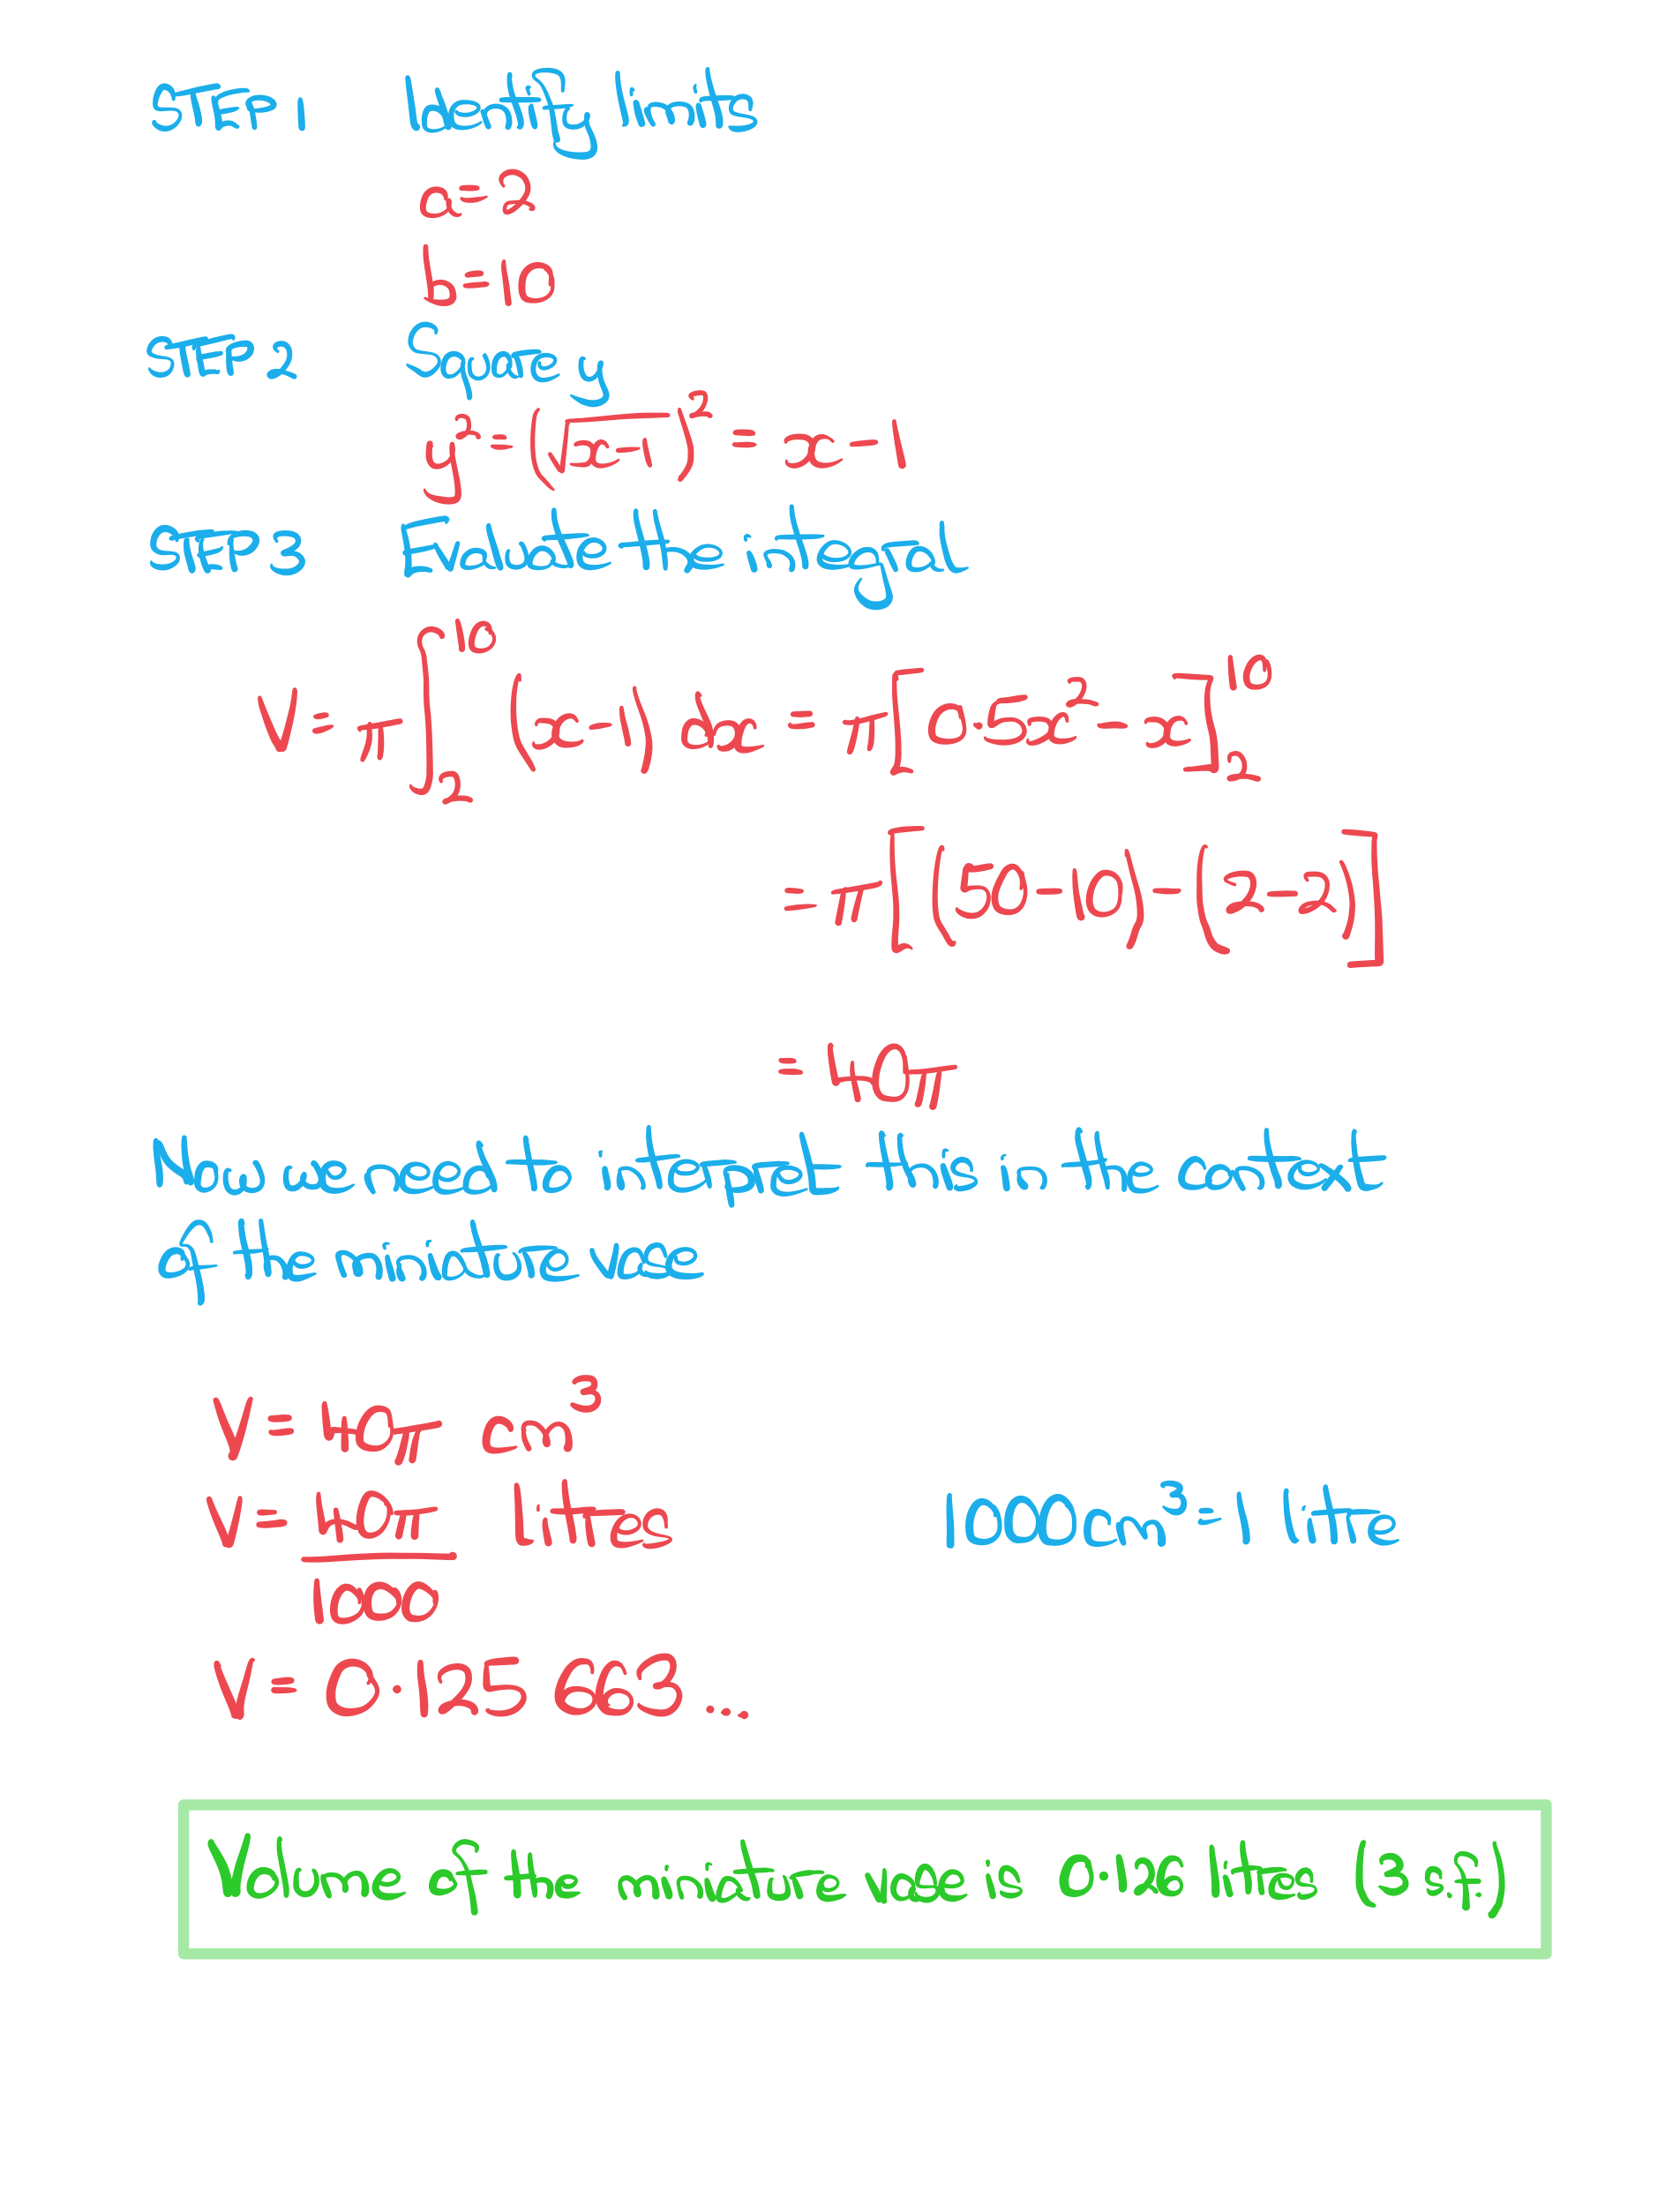 STEP 1 Identify limits
a=2
b=10
STEP 2 Square y
y²=(√(x-1))² = x-1
STEP 3 Evaluate the integral
V= π∫₂¹⁰ (x-1) dx = π[0.5x²-x]₂¹⁰
= π[(50-10)-(2-2)]
= 40π
Now we need to interpret this in the context
of the miniature vase
V= 40π cm³
V= 40π/1000 litres 1000cm³=1 litre
V= 0.125 663...
Volume of the miniature vase is 0.126 litres (3 s.f.)